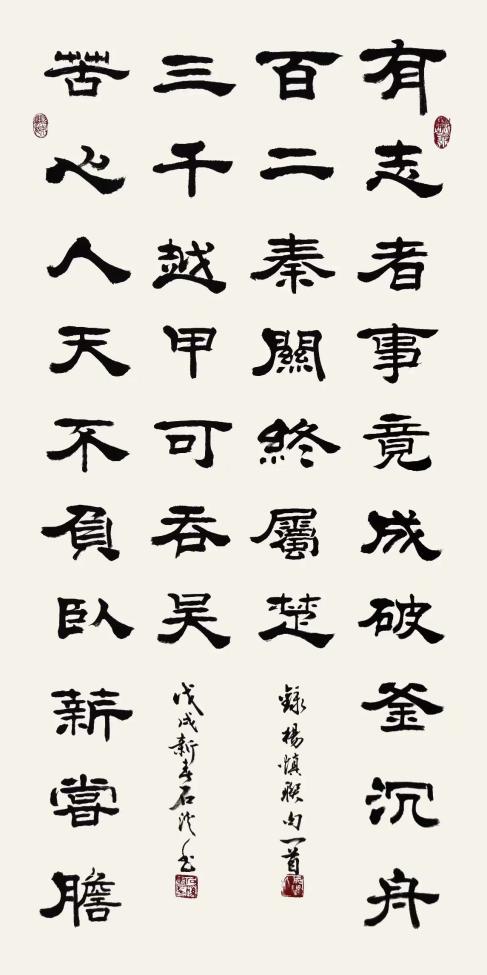 有志者事竟成破釜沉舟
百二秦關終屬楚
錄楊慎聯句一首
苦心人天不負臥薪嘗膽
三千越甲可吞吴
戊戌新春石书